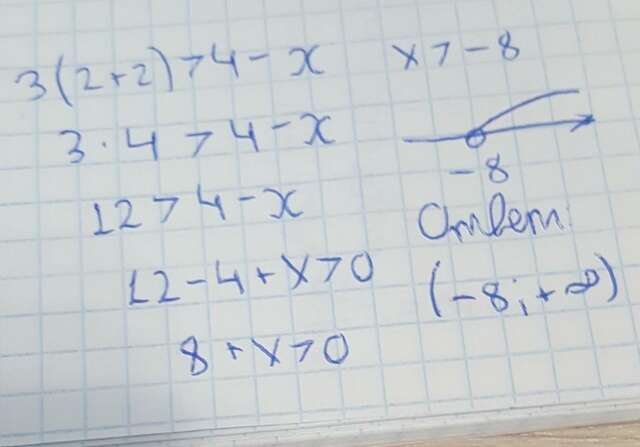 3(2+2)>4-x
3·4>4-x
12>4-x
12-4+x>0
8+x>0
x>-8
-8
Ответ:
(-8;+∞)